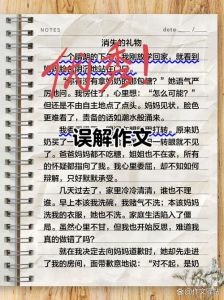 NOTES
date
消失的礼物
一个晴朗的下午，我刚放学回家，就看到
地站在门口
有没有拿奶奶的那包糖？”她语气严
厉地问。我愣住了，心里想：“怎么可能？”
但还是不由自主地点了点头。妈妈见状，脸色
更难看了，责备的话如潮水般涌来。
我 里打转，原来奶
奶买了一 一转眼就不见
误解作文
了。爸爸妈妈都不吃糖，姐姐也不在家，所有
的怀疑都指向了我。我心里委屈，却不知如何
辩解，只好默默承受。
几天过去了，家里冷冷清清，谁也不理
谁。早上本该我洗碗，我赌气不洗；本该妈妈
洗我的衣服，她也不洗。家庭生活陷入了僵
局。虽然心里不甘，但我也开始反思，难道我
真的做错了吗？
就在我决定去向妈妈道歉时，她却先走进
了我的房间，面带歉意地说：“对不起，是奶